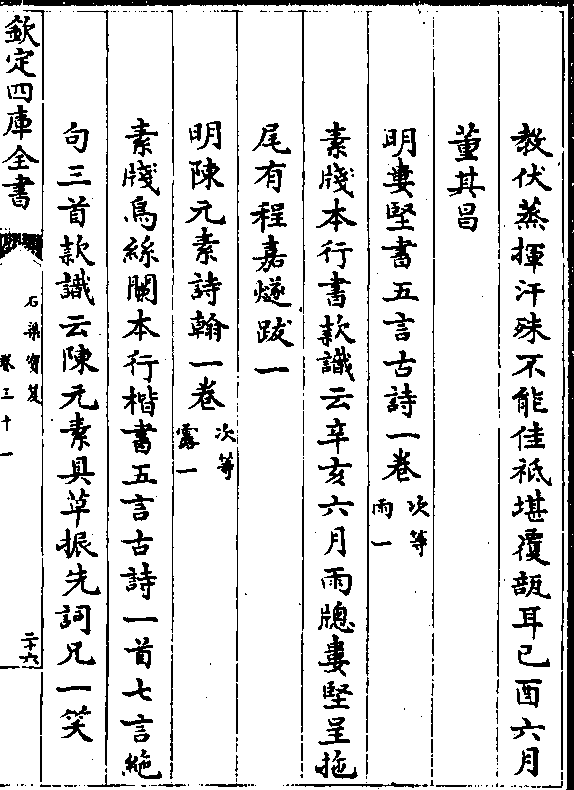 教伏蒸揮汗殊不能佳祗堪覆瓿耳已酉六月
董其昌
明婁堅書五言古詩一卷 次等雨一
素牋本行書款識云辛亥六月雨牕婁堅呈拖
尾有程嘉燧跋一
明陳元素詩翰一卷 次等露一
素牋烏絲闌本行楷書五言古詩一首七言絶
句三首款識云陳元素具草振先詞兄一笑
欽定四庫全書
石渠寶笈
卷三十一
二十六